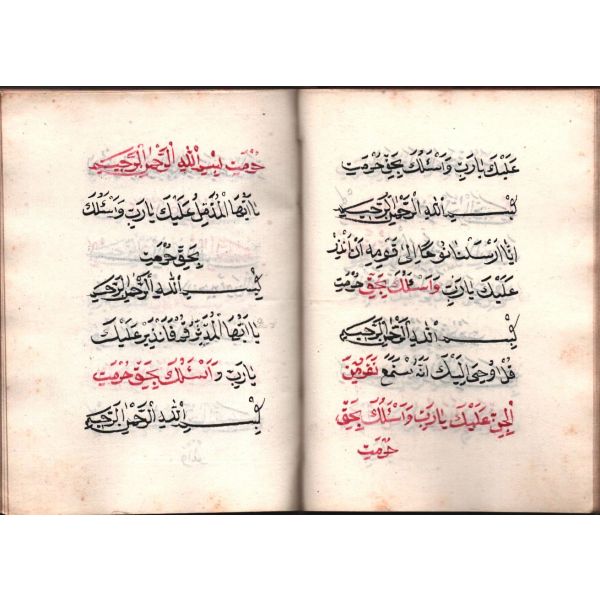 عَلَيْكَ يَارَبِّ وَاَسْئَلُكَ بِحَقِّ حُرْمَتِ
بِسْمِ اللهِ الرَّحْمٰنِ الرَّحِيمِ
اِنَّا اَرْسَلْنَا نُوحًا اِلٰى قَوْمِهِ اَنْ اَنْذِرْ
عَلَيْكَ يَارَبِّ وَاَسْئَلُكَ بِحَقِّ حُرْمَتِ
بِسْمِ اللهِ الرَّحْمٰنِ الرَّحِيمِ
قُلْ اُوحِىَ اِلَيْكَ اَنَّهُ اسْتَمَعَ نَفَرٌ مِنَ
الْجِنِّ عَلَيْكَ يَارَبِّ وَاَسْئَلُكَ بِحَقِّ
حُرْمَتِ
حُرْمَتِ بِسْمِ اللهِ الرَّحْمٰنِ الرَّحِيمِ
يَا اَيُّهَا الْمُزَّمِّلُ عَلَيْكَ يَارَبِّ وَاَسْئَلُكَ
بِحَقِّ حُرْمَتِ
بِسْمِ اللهِ الرَّحْمٰنِ الرَّحِيمِ
يَا اَيُّهَا الْمُدَّثِّرُ قُمْ فَاَنْذِرْ عَلَيْكَ
يَارَبِّ وَاَسْئَلُكَ بِحَقِّ حُرْمَتِ
بِسْمِ اللهِ الرَّحْمٰنِ الرَّحِيمِ